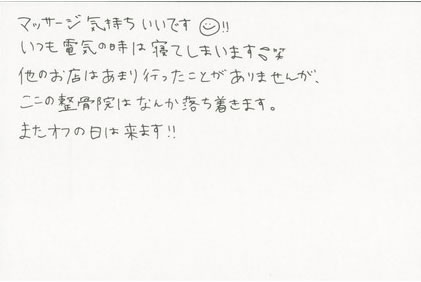 マッサージ気持ちいいです☺!!
いつも電気の時は寝てしまいます💤
他のお店はあまり行ったことがありませんが、
ここの整骨院はなんか落ち着きます。
またオフの日は来ます!!